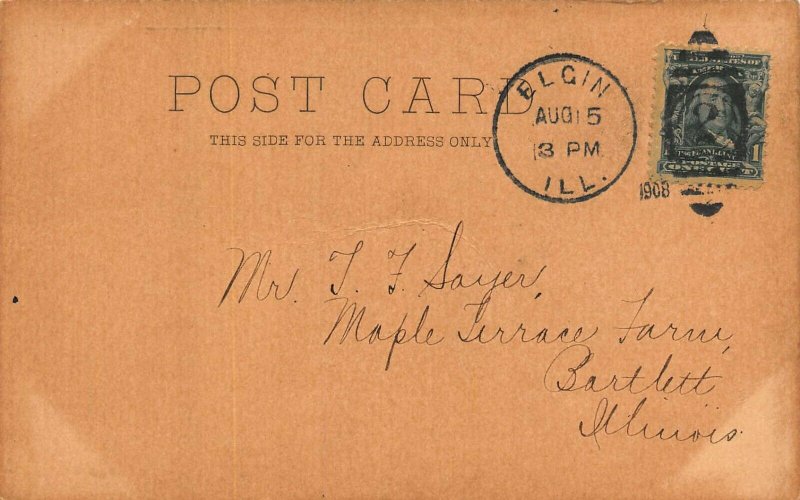 POST CARD
THIS SIDE FOR THE ADDRESS ONLY
ELGIN
AUG 15
3 PM
ILL.
1908
1
POSTAGE
ONE CENT
Mr. T. F. Sayer,
Maple Terrace Farm,
Bartlett
Illinois.